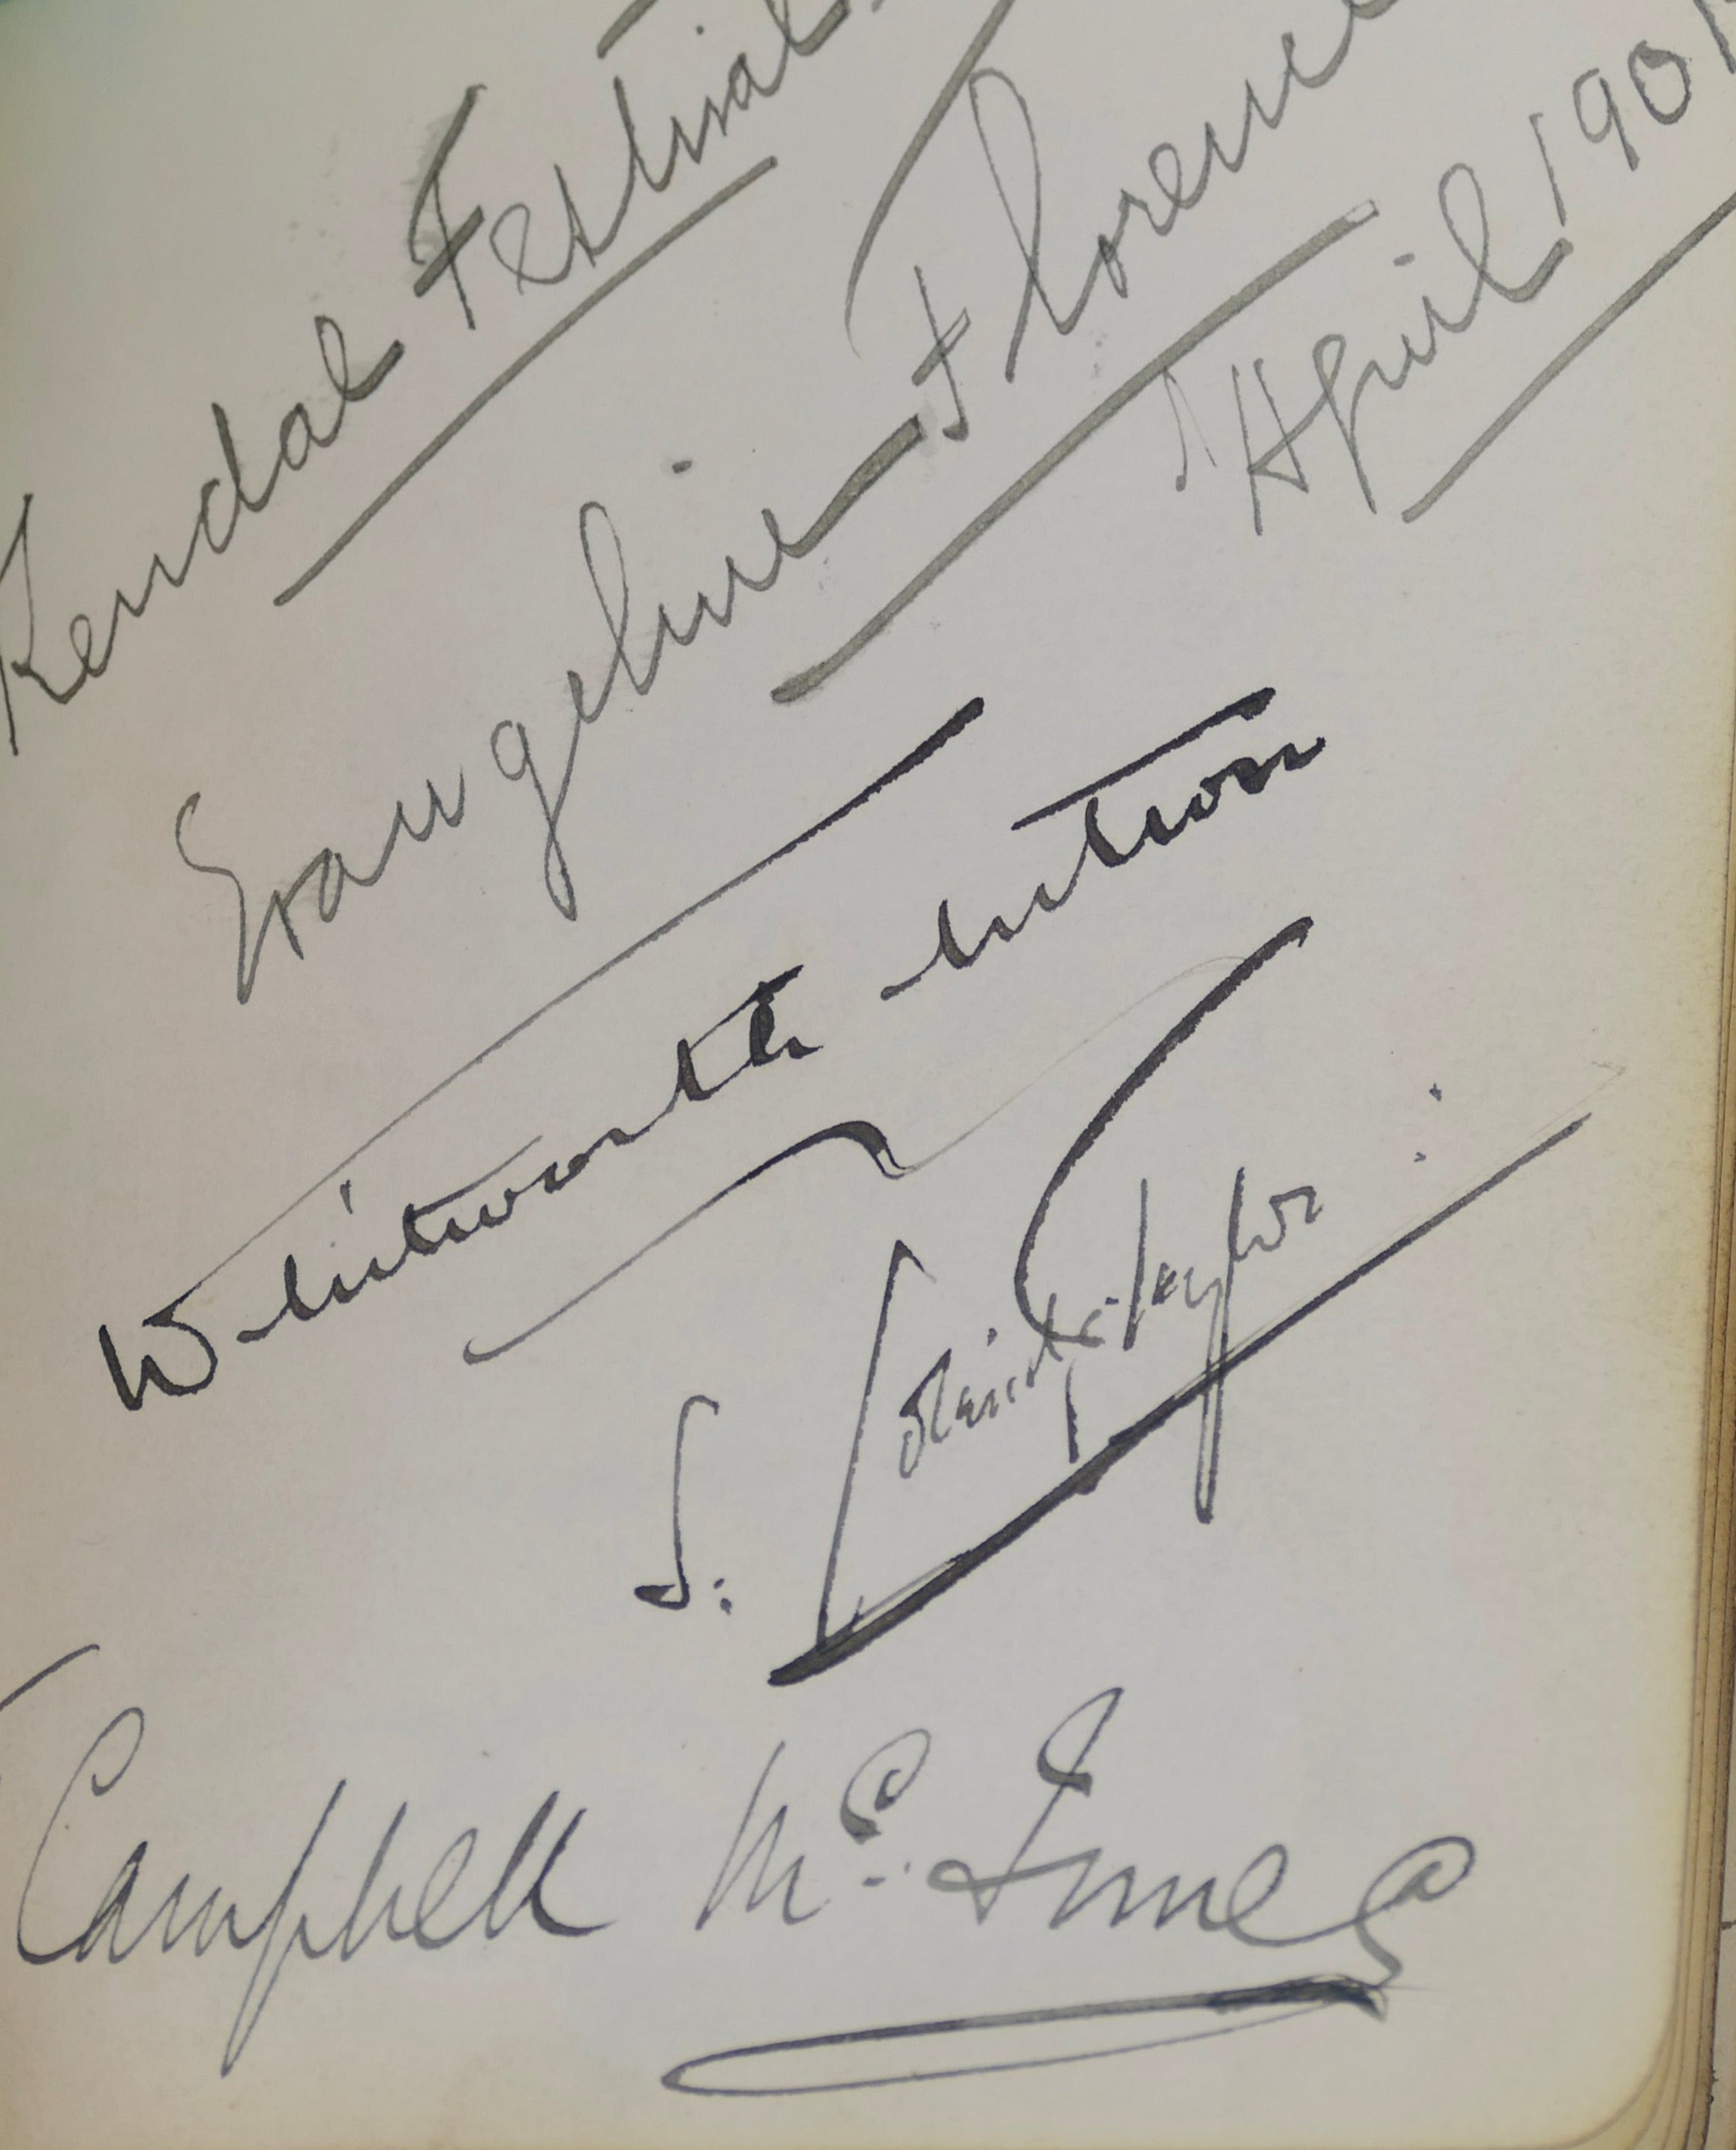 Kendal Festival
Evangeline Florence
April 1901
Whitworth Mitton
S. Coleridge-Taylor
Campbell McInnes